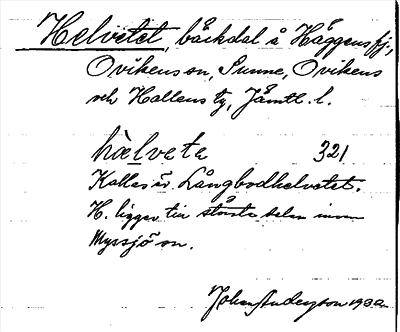 Helvetet, bäckdal å Häggens fj.,
Ovikens sn, Sunne, Ovikens
och Hallens tg, Jämtl. l.
hælveta 321
Kallas äv. Långbodhelvetet.
H. ligger till största delen inom
Myssjö sn.
Johan Anderzon 1932